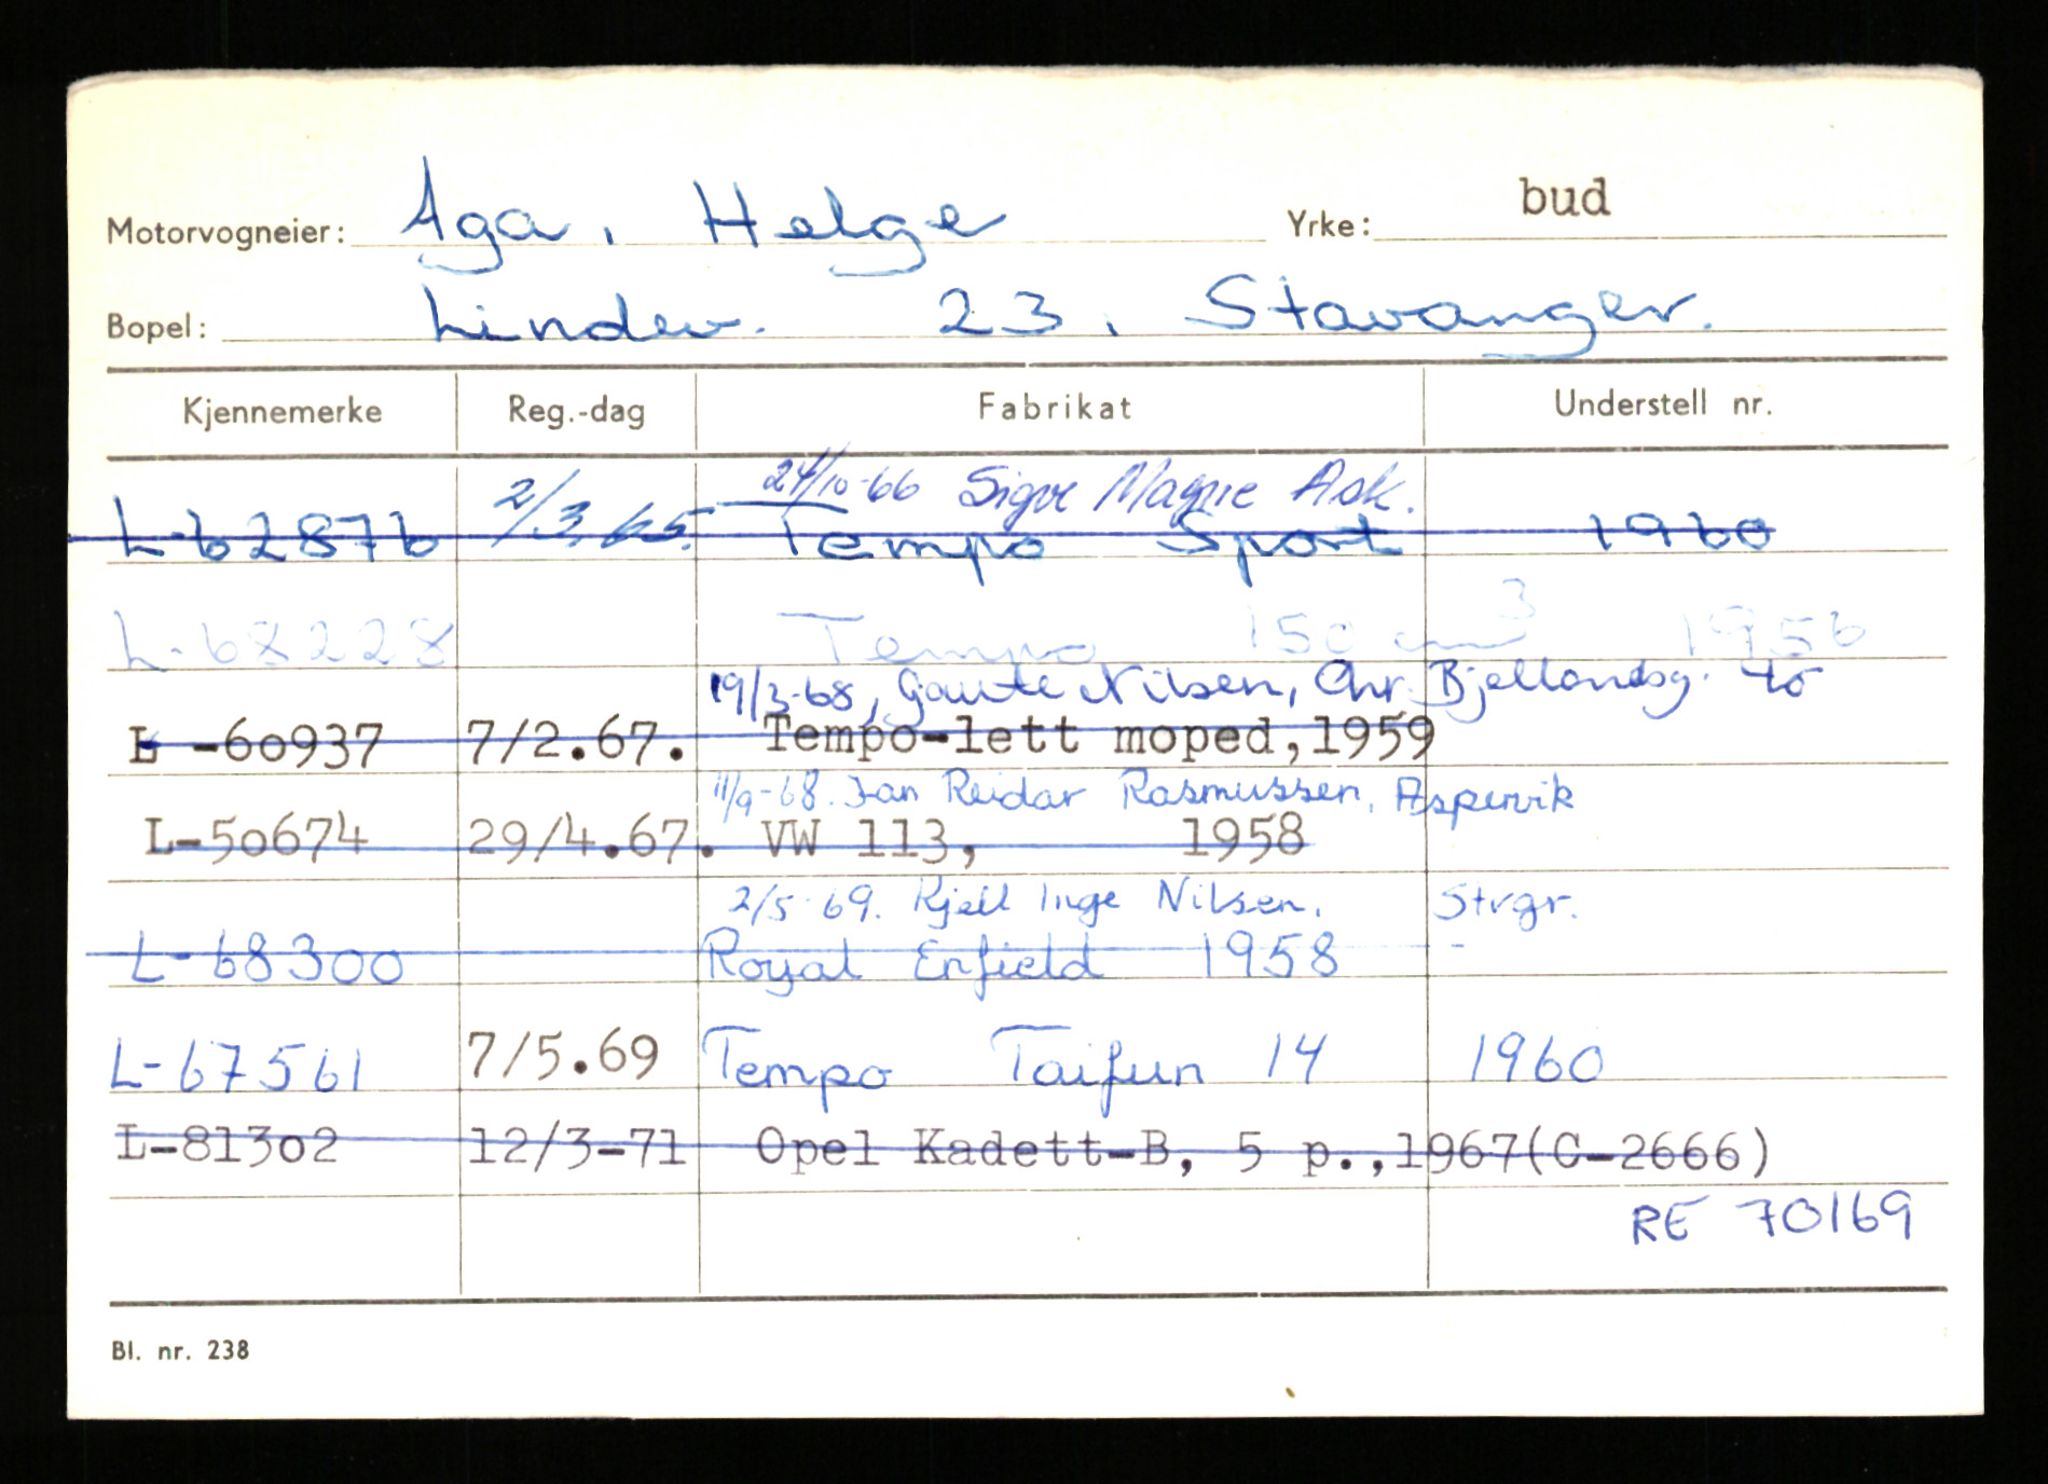 Motorvogneier: Aga, Helge Yrke: bud
Bopel: Lindev. 23, Stavanger.
Kjennemerke Reg.-dag Fabrikat Understell nr.
24/10-66 Sigve Magne Ask.
L-62876 2/3.65. Tempo Sport 1960
L-68228 Tempo 150 cm3 1956
19/3-68, Gaute Nilsen, Chr. Bjellandsg. 40
L -60937 7/2.67. Tempo-lett moped,1959
11/9-68. Jan Reidar Rasmussen, Aspervik
L-50674 29/4.67. VW 113, 1958
2/5-69. Kjell Inge Nilsen, Strgr.
L-68300 Royal Enfield 1958
L-67561 7/5.69 Tempo Taifun 14 1960
L-81302 12/3-71 Opel Kadett-B, 5 p.,1967(C-2666)
RE 70169
Bl. nr. 238